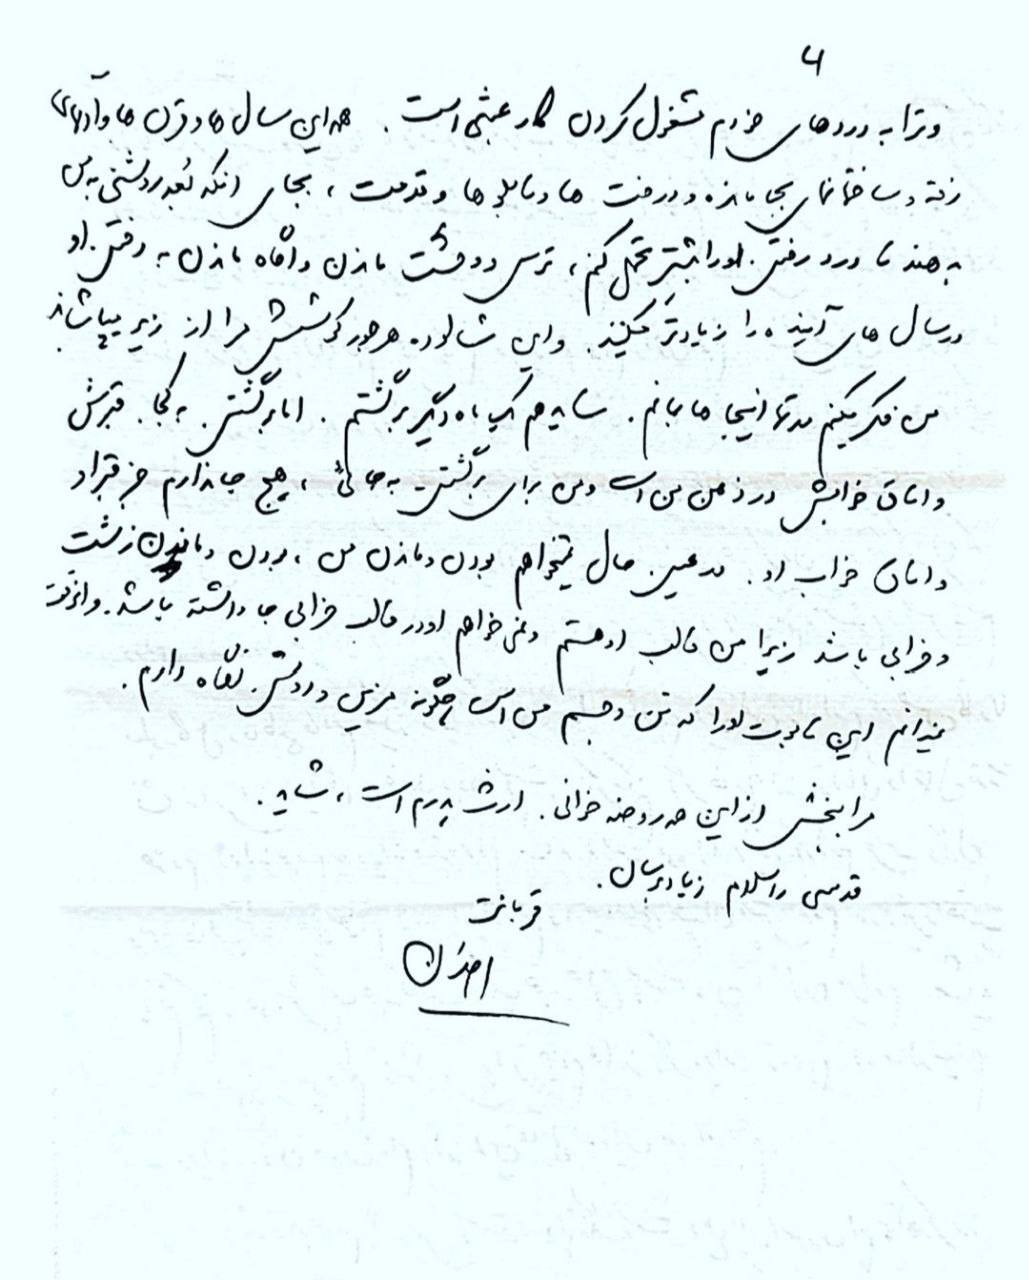 ۴
و ترا به دردهای خودم مشغول کردن کار عبثی است. همه این سال ها و قرن ها و آدمهای
رفته و ساختمانهای بجا مانده و درخت ها و تابلوها و قدمت، بجای اینکه بُعد روشنی به من
بدهند تا درد رفتن او را بهتر تحمل کنم، ترس و وحشت ماندن و آگاه ماندن به رفتن او
در سال های آینده را زیادتر میکنند. و این شالوده هرجور کوشش مرا از زیر میپاشاند.
من فکر میکنم مدتها اینجا ها بمانم. شاید هم یک ماه دیگر برگشتم. اما برگشتن. به کجا. قبرش
و اتاق خوابش در ذهن من است و من برای برگشتن به جائی، هیچ جا ندارم جز قبر او
و اتاق خواب او. در عین حال نمیخواهم بودن و ماندن من، بودن و ماندن زشت
و خرابی باشد زیرا من قالب او هستم و نمی خواهم او در قالب خرابی جا داشته باشد. و آنوقت
نمیدانم این تابوت او را که تن و جسم من است چگونه مزین و روشن نگاه دارم.
مرا ببخش از این همه روضه خوانی. ارث پدرم است، شاید.
قدسی را سلام زیاد برسان.
قربانت